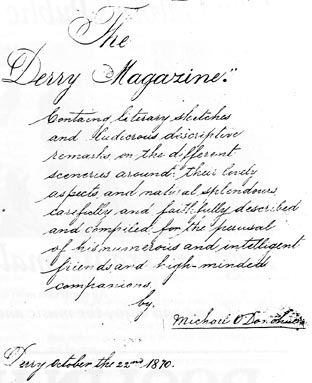 The
Derry Magazine."
Containg literary sketches
and Ludicrous discriptive
remarks on the different
sceneries around: their lovely
aspects, and natural splendours
carefully and faithfully described
and compiled for the perusal
of his numerous and intelligent
friends and high-minded
companions.
by.
Michael O Donohue
Derry October the 22nd 1870.